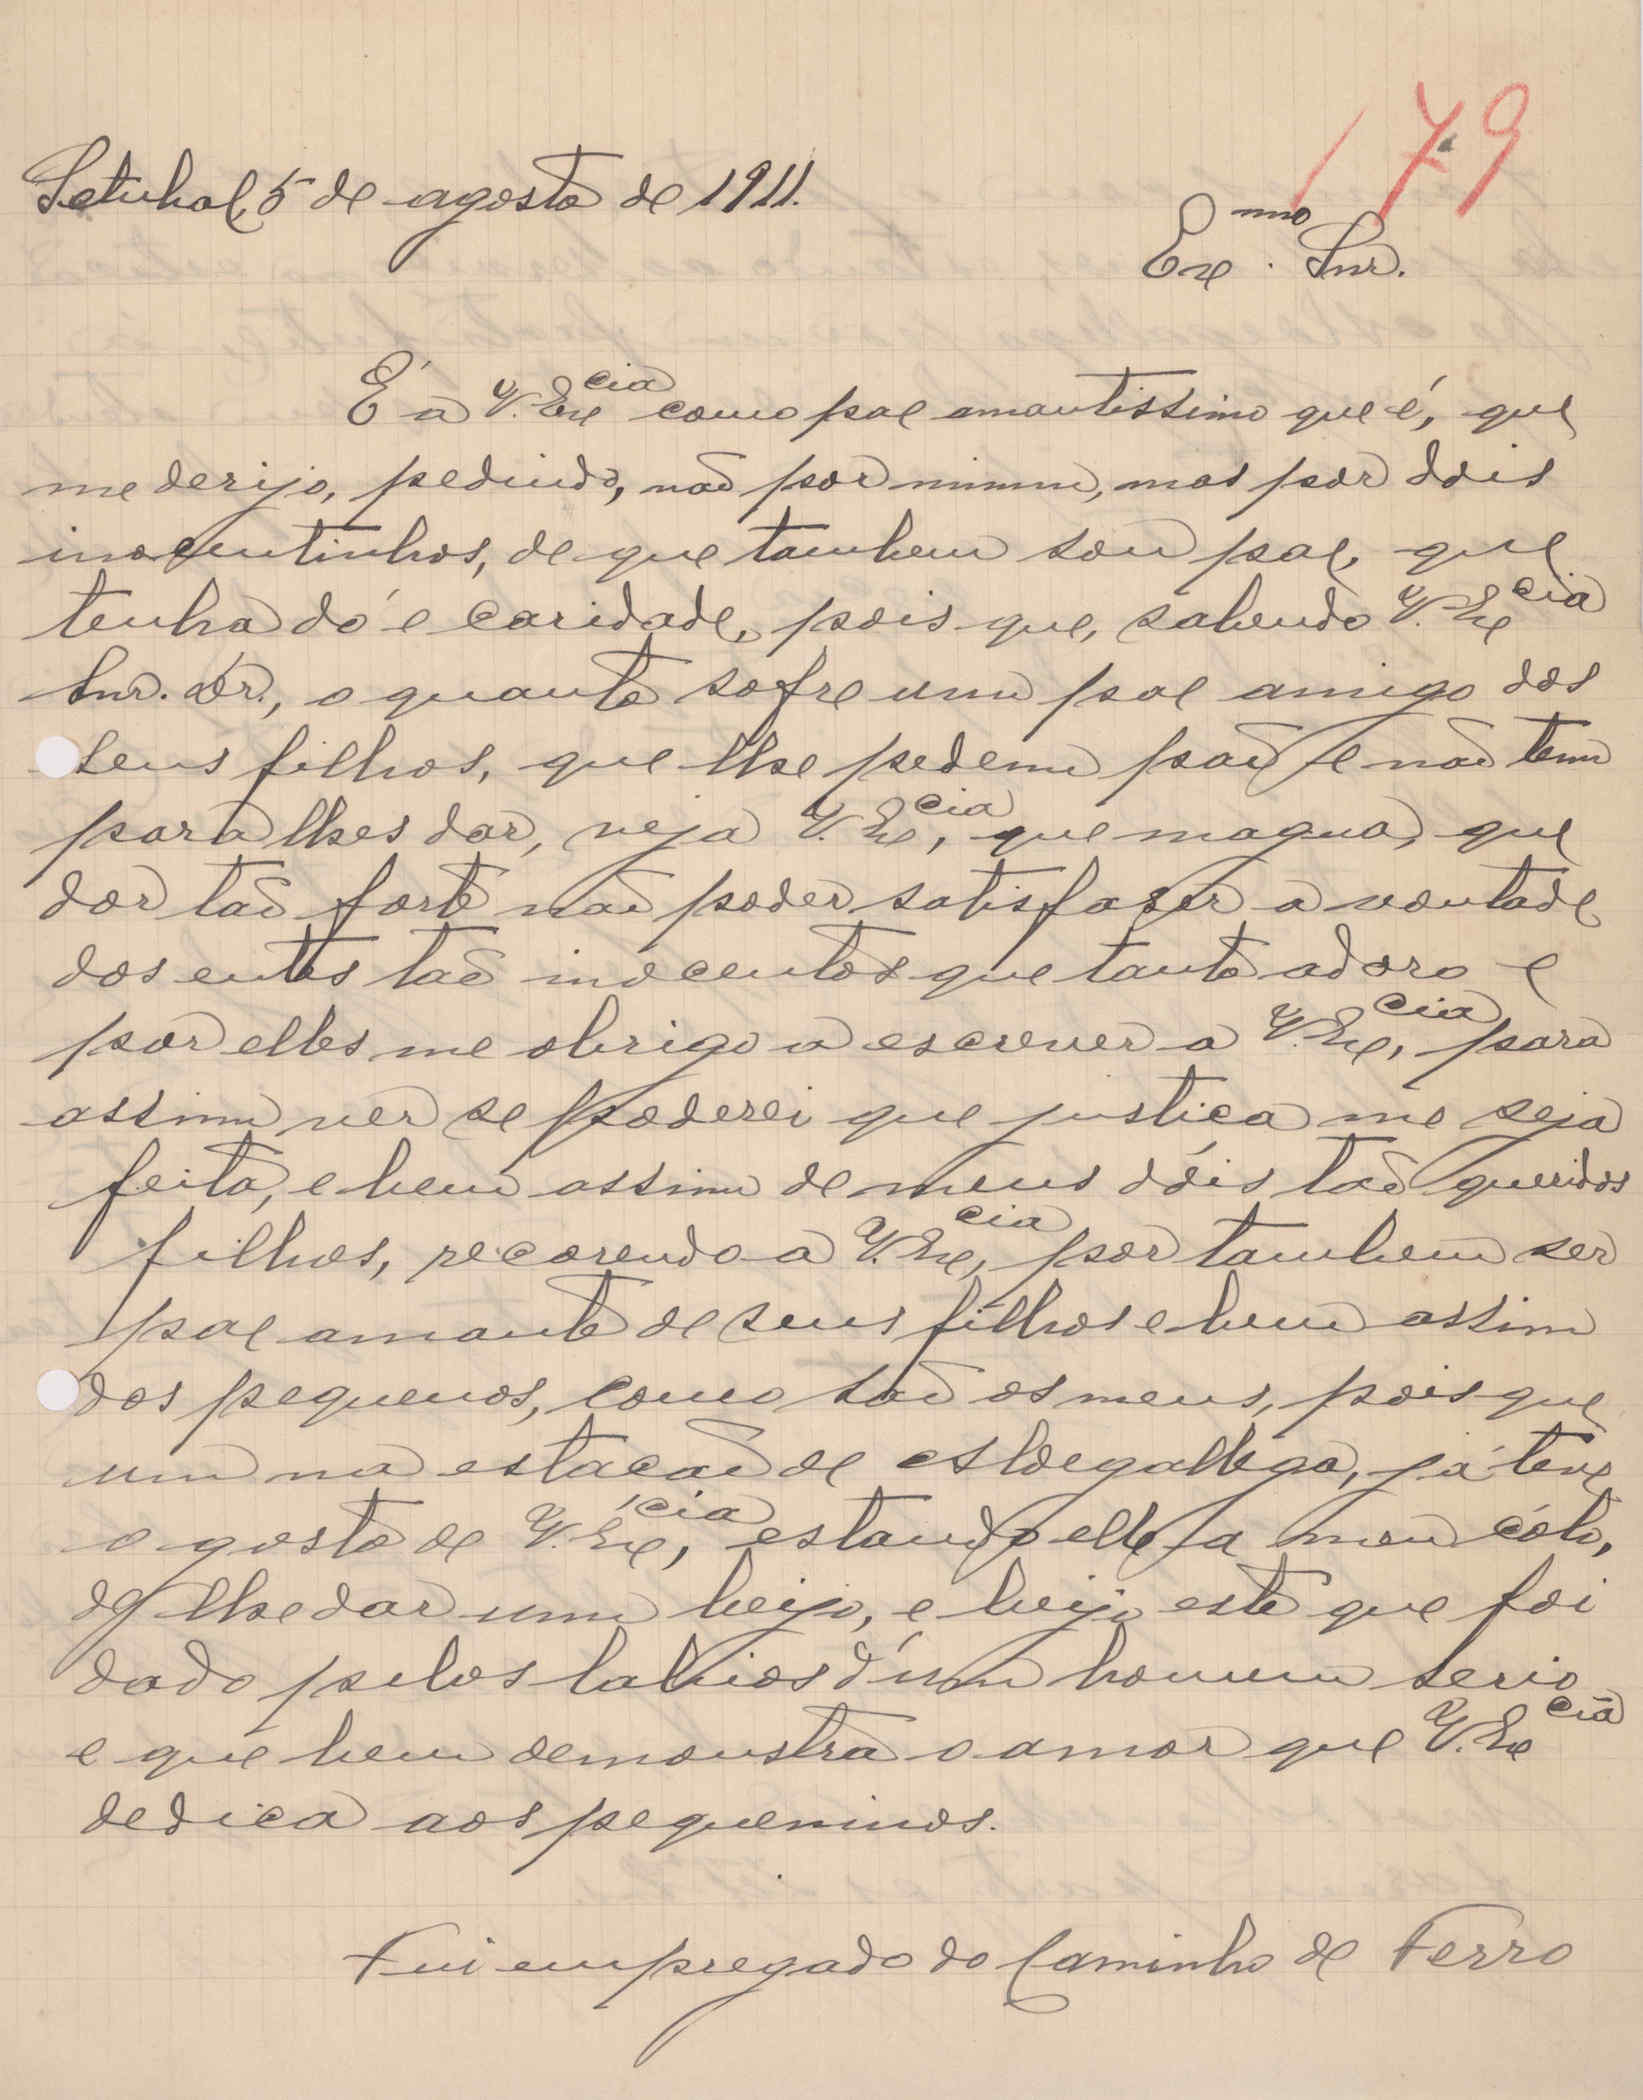 179
Setubal, 5 de agosto de 1911.
Exmo. Snr.
É a V. Excia como pae amantissimo que é, que
me derijo, pedindo, não por mimm, mas por dois
inocentinhos, de que tambem sou pae, que
tenha dó e caridade, pois que, sabendo V. Excia
Snr. Dr., o quanto sofre um pae amigo dos
seus filhos, que lhe pedem pão e não tem
para lhes dar, veja V. Excia, que magua, que
dor tão forte não poder satisfaser a vontade
dos entes tão inocentes que tanto adoro e
por elles me obrigo a escrever a V. Excia, para
assim ver se poderei que justica me seja
feita, e bem assim de meus dóis tão queridos
filhos, recorendo a V. Excia, por tambem ser
pae amante de seus filhos e bem assim
dos pequenos, como são os meus, pois que
um na estacão de Aldegallega, já teve
o gosto de V. Excia, estando elle a meu cólo,
de lhe dar um beijo, e beijo este que foi
dado pelos labios d'um homem serio
e que bem demonstra o amor que V. Excia
dedica aos pequeninos.
Fui empregado do Caminho de Ferro